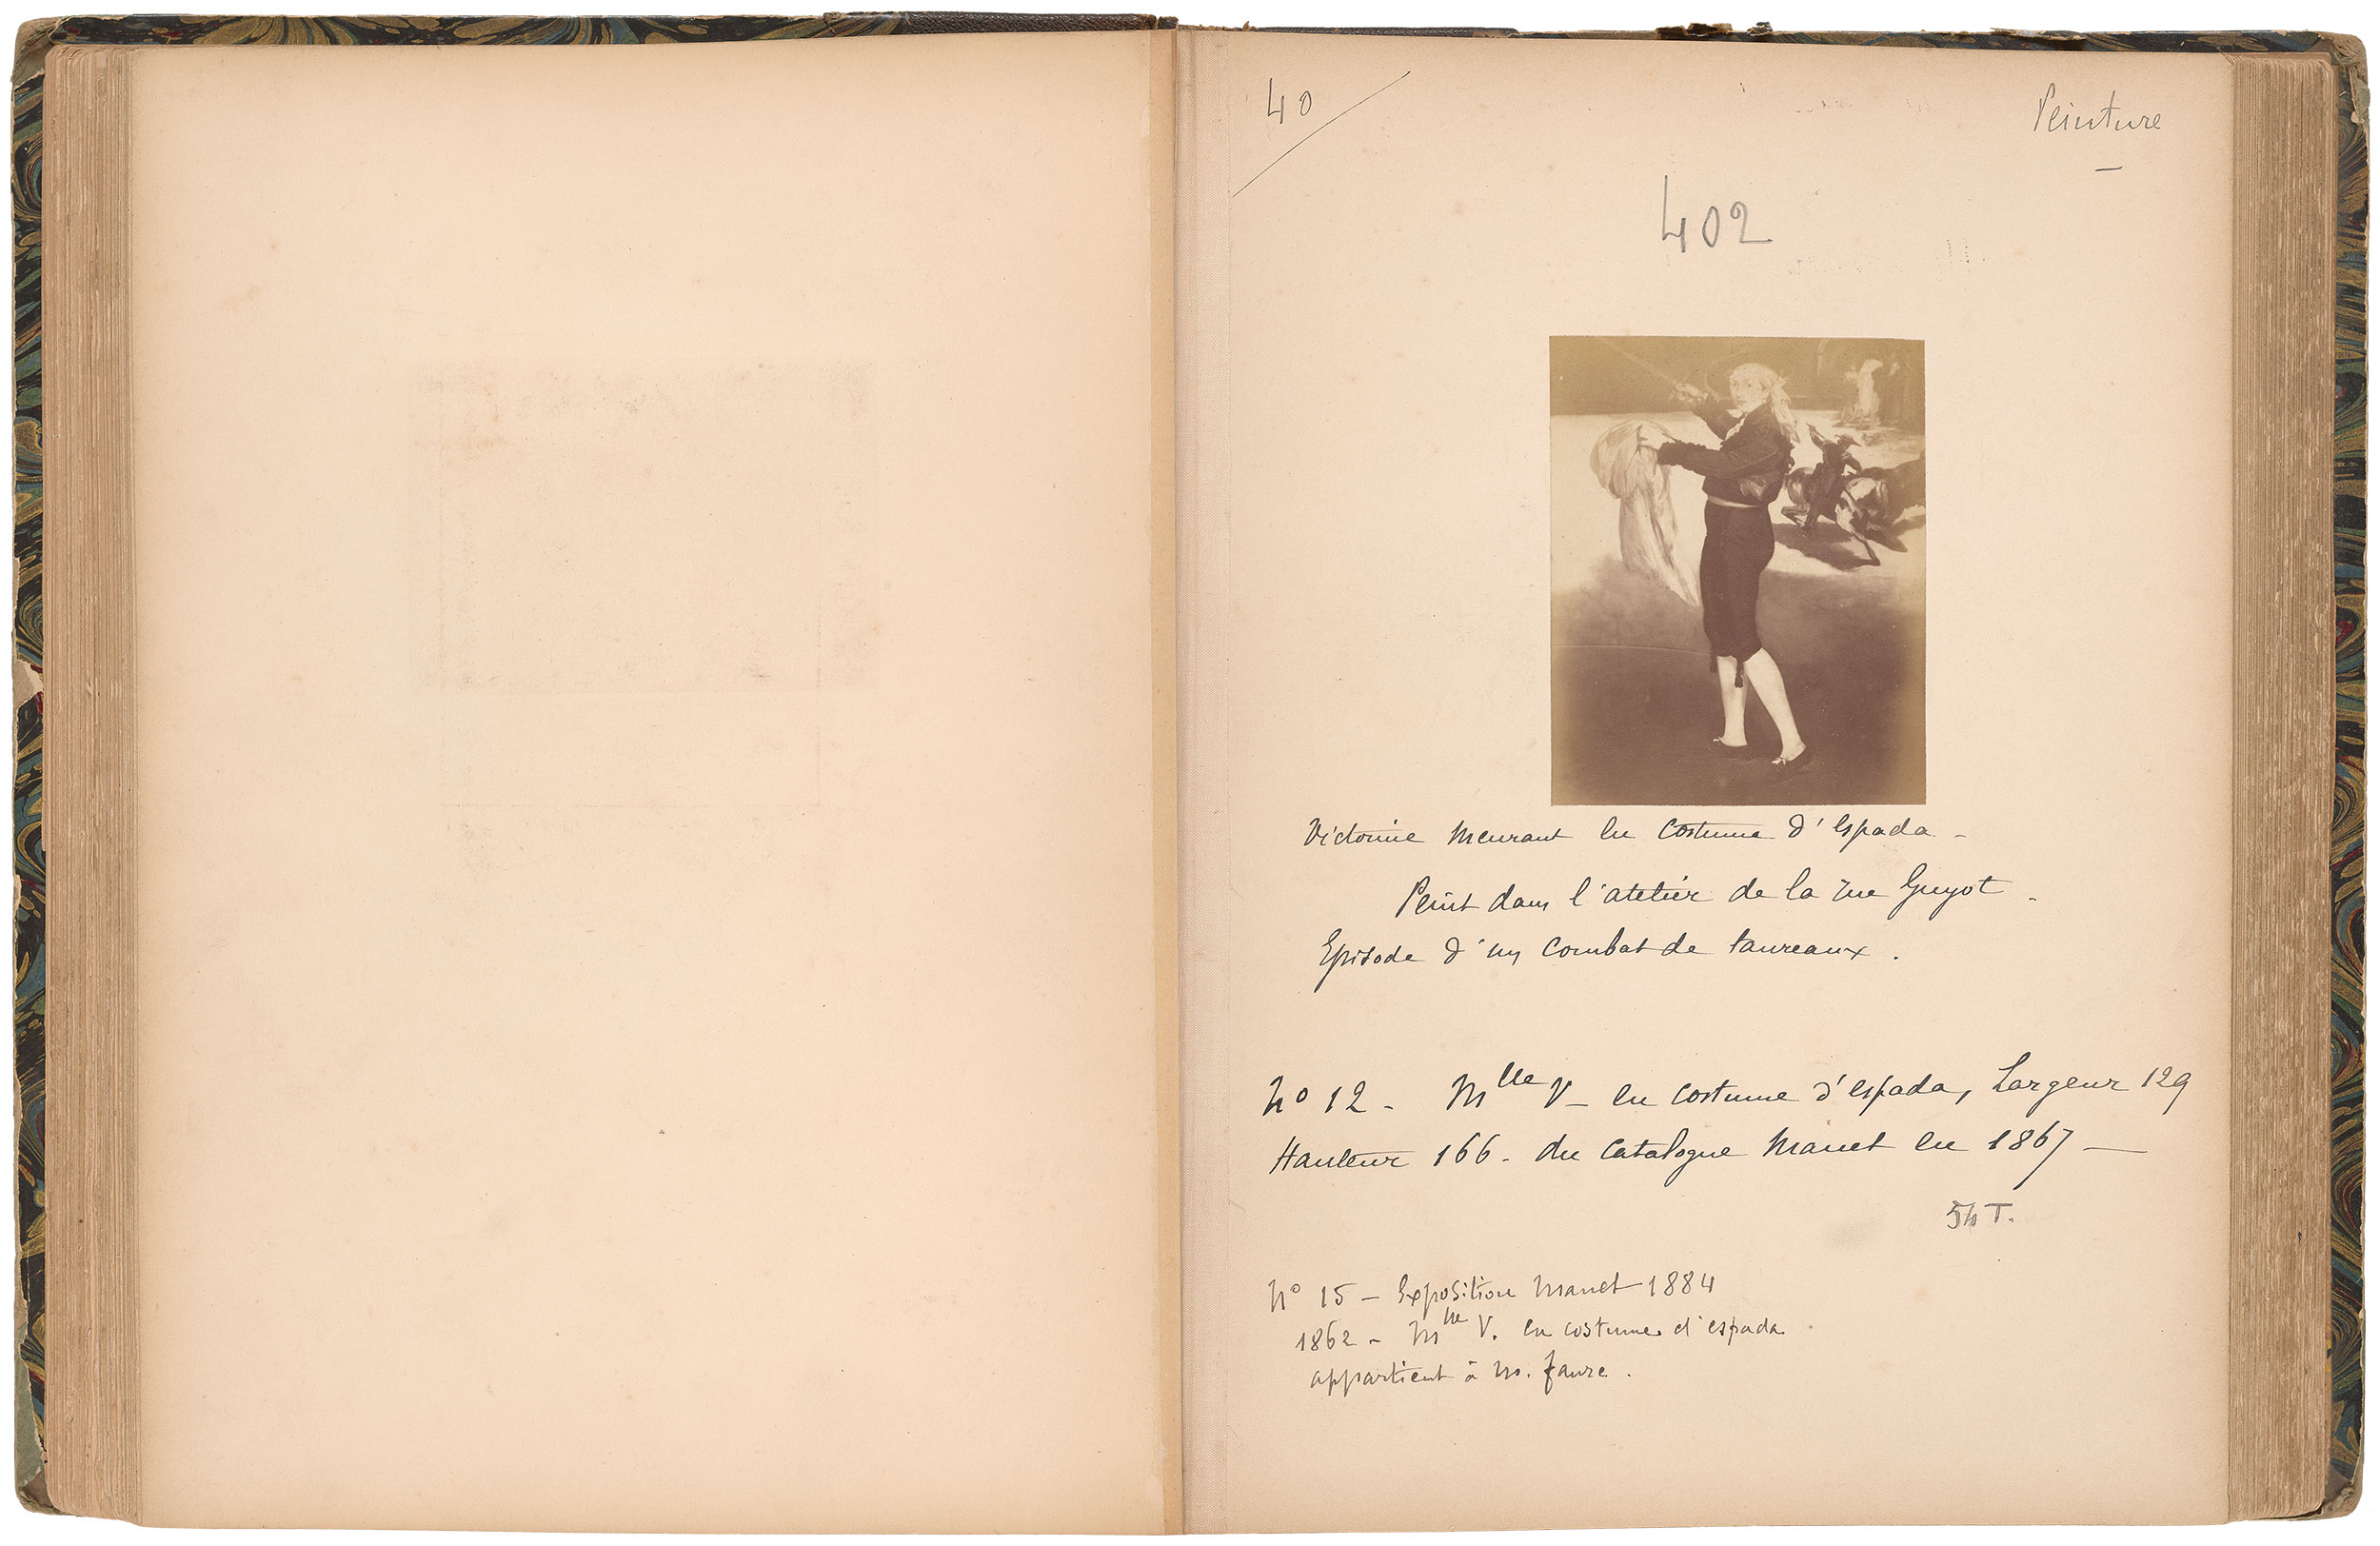 40
Peinture
402
Victorine Meurant en costume d'espada -
Peint dans l'atelier de la rue Guyot -
Episode d'un combat de taureaux.
No 12 - Mlle V - en costume d'espada, Largeur 129
Hauteur 166 - du catalogue Manet en 1867 —
54 T.
No 15 - Exposition Manet 1884
1862 - Mlle V. en costume d'espada
appartient à M. Faure.